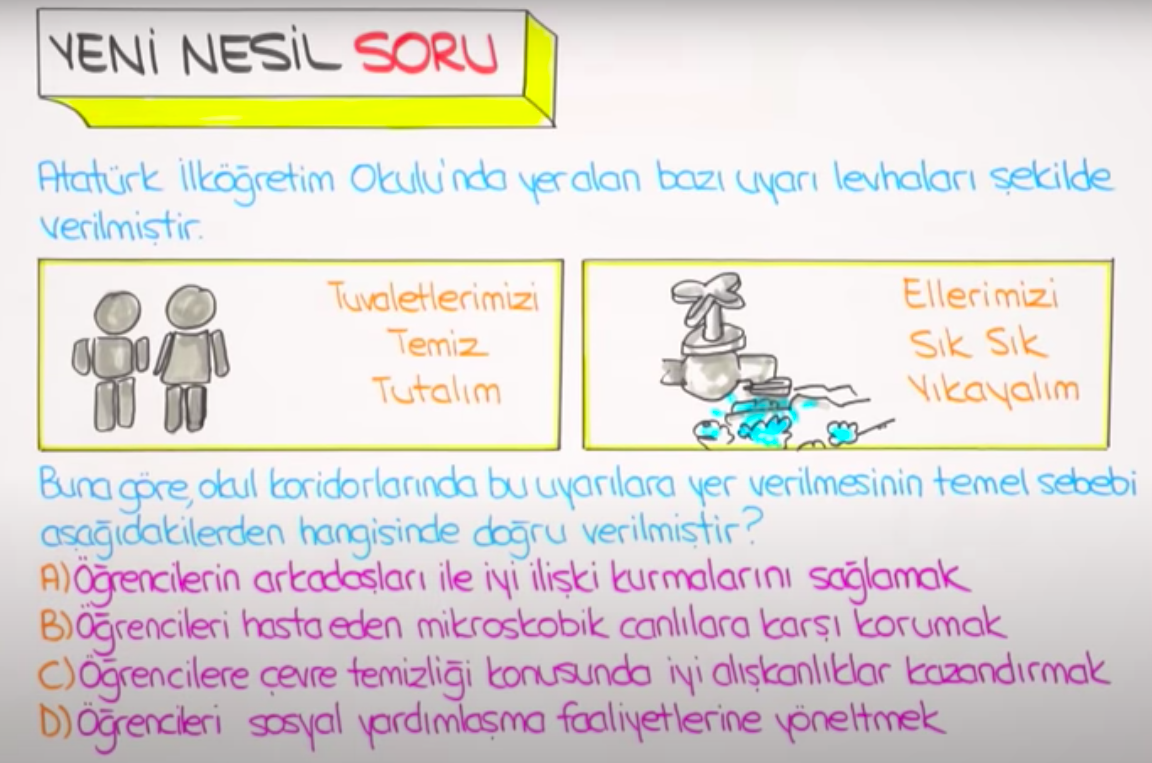 YENİ NESİL SORU
Atatürk İlköğretim Okulu'nda yer alan bazı uyarı levhaları şekilde
verilmiştir.
Tuvaletlerimizi
Temiz
Tutalım
Ellerimizi
Sık Sık
Yıkayalım
Buna göre, okul koridorlarında bu uyarılara yer verilmesinin temel sebebi
aşağıdakilerden hangisinde doğru verilmiştir?
A) Öğrencilerin arkadaşları ile iyi ilişki kurmalarını sağlamak
B) Öğrencileri hasta eden mikroskobik canlılara karşı korumak
C) Öğrencilere çevre temizliği konusunda iyi alışkanlıklar kazandırmak
D) Öğrencileri sosyal yardımlaşma faaliyetlerine yöneltmek